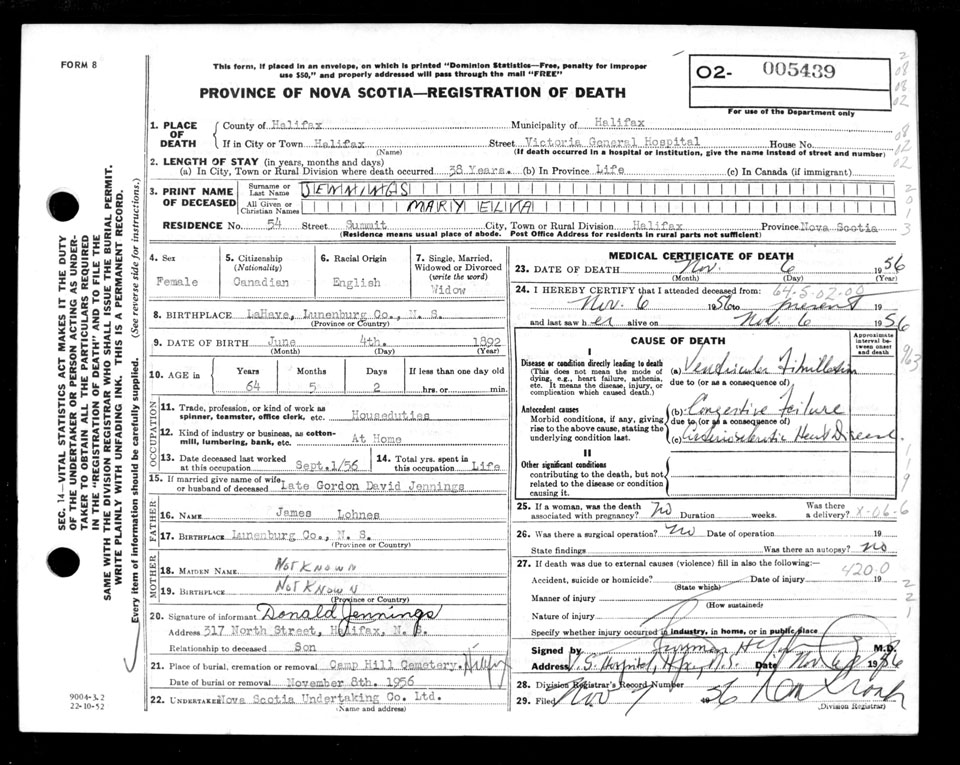 FORM 8
This form, if placed in an envelope, on which is printed "Dominion Statistics—Free, penalty for improper
use $50," and properly addressed will pass through the mail "FREE"
PROVINCE OF NOVA SCOTIA—REGISTRATION OF DEATH
02- 005439
For use of the Department only
SEC. 14—VITAL STATISTICS ACT MAKES IT THE DUTY
OF THE UNDERTAKER OR PERSON ACTING AS UNDER-
TAKER TO OBTAIN ALL THE PARTICULARS REQUIRED
IN THE "REGISTRATION OF DEATH" AND TO FILE THE
SAME WITH THE DIVISION REGISTRAR WHO SHALL ISSUE THE BURIAL PERMIT.
WRITE PLAINLY WITH UNFADING INK. THIS IS A PERMANENT RECORD.
Every item of information should be carefully supplied. (See reverse side for instructions.)
1. PLACE OF DEATH
County of Halifax Municipality of Halifax
If in City or Town Halifax Street Victoria General Hospital House No.
(Name) (If death occurred in a hospital or institution, give the name instead of street and number)
2. LENGTH OF STAY (in years, months and days)
(a) In City, Town or Rural Division where death occurred 38 Years. (b) In Province Life (c) In Canada (if immigrant)
3. PRINT NAME OF DECEASED
Surname or Last Name JENNINGS
All Given or Christian Names MARY ELVA
RESIDENCE No. 54 Street Summit City, Town or Rural Division Halifax Province Nova Scotia
(Residence means usual place of abode. Post Office Address for residents in rural parts not sufficient)
4. Sex
Female
5. Citizenship
(Nationality)
Canadian
6. Racial Origin
English
7. Single, Married, Widowed or Divorced
(write the word)
Widow
8. BIRTHPLACE LaHave, Lunenburg Co., N. S.
(Province or Country)
9. DATE OF BIRTH June 4th. 1892
(Month) (Day) (Year)
10. AGE in Years Months Days If less than one day old
64 5 2 hrs. or min.
OCCUPATION
11. Trade, profession, or kind of work as spinner, teamster, office clerk, etc. Houseduties
12. Kind of industry or business, as cotton-mill, lumbering, bank, etc. At Home
13. Date deceased last worked at this occupation Sept.1/56
14. Total yrs. spent in this occupation Life
15. If married give name of wife or husband of deceased Late Gordon David Jennings
FATHER
16. NAME James Lohnes
17. BIRTHPLACE Lunenburg Co., N. S.
(Province or Country)
MOTHER
18. MAIDEN NAME Not Known
19. BIRTHPLACE Not Known
(Province or Country)
20. Signature of informant Donald Jennings
Address 317 North Street, Halifax, N. S.
Relationship to deceased Son
21. Place of burial, cremation or removal Camp Hill Cemetery. Halifax
Date of burial or removal November 8th. 1956
22. UNDERTAKER Nova Scotia Undertaking Co. Ltd.
(Name and address)
9004-3.2
22-10-52
MEDICAL CERTIFICATE OF DEATH
23. DATE OF DEATH Nov. 6 1956
(Month) (Day) (Year)
24. I HEREBY CERTIFY that I attended deceased from: 64-5-02-00
Nov. 6 1956 to present 19
and last saw her alive on Nov. 6 1956
CAUSE OF DEATH
Approximate interval between onset and death
I
Disease or condition directly leading to death
(This does not mean the mode of dying, e.g., heart failure, asthenia, etc. It means the disease, injury, or complication which caused death.)
(a) Ventricular Fibrillation
due to (or as a consequence of)
Antecedent causes
Morbid conditions, if any, giving rise to the above cause, stating the underlying condition last.
(b) Congestive Failure
due to (or as a consequence of)
(c) Arteriosclerotic Heart Disease.
II
Other significant conditions
contributing to the death, but not related to the disease or condition causing it.
25. If a woman, was the death associated with pregnancy? no Duration weeks. Was there a delivery? X-06-6
26. Was there a surgical operation? no Date of operation
State findings Was there an autopsy? no
27. If death was due to external causes (violence) fill in also the following:
420.0
Accident, suicide or homicide? Date of injury 19
(State which)
Manner of injury
(How sustained)
Nature of injury
Specify whether injury occurred in industry, in home, or in public place
Signed by M.D.
Address V. S. Hospital, Hfx, N.S. Date Nov 6 1956
28. Division Registrar's Record Number
29. Filed Nov 7 1956
(Division Registrar)